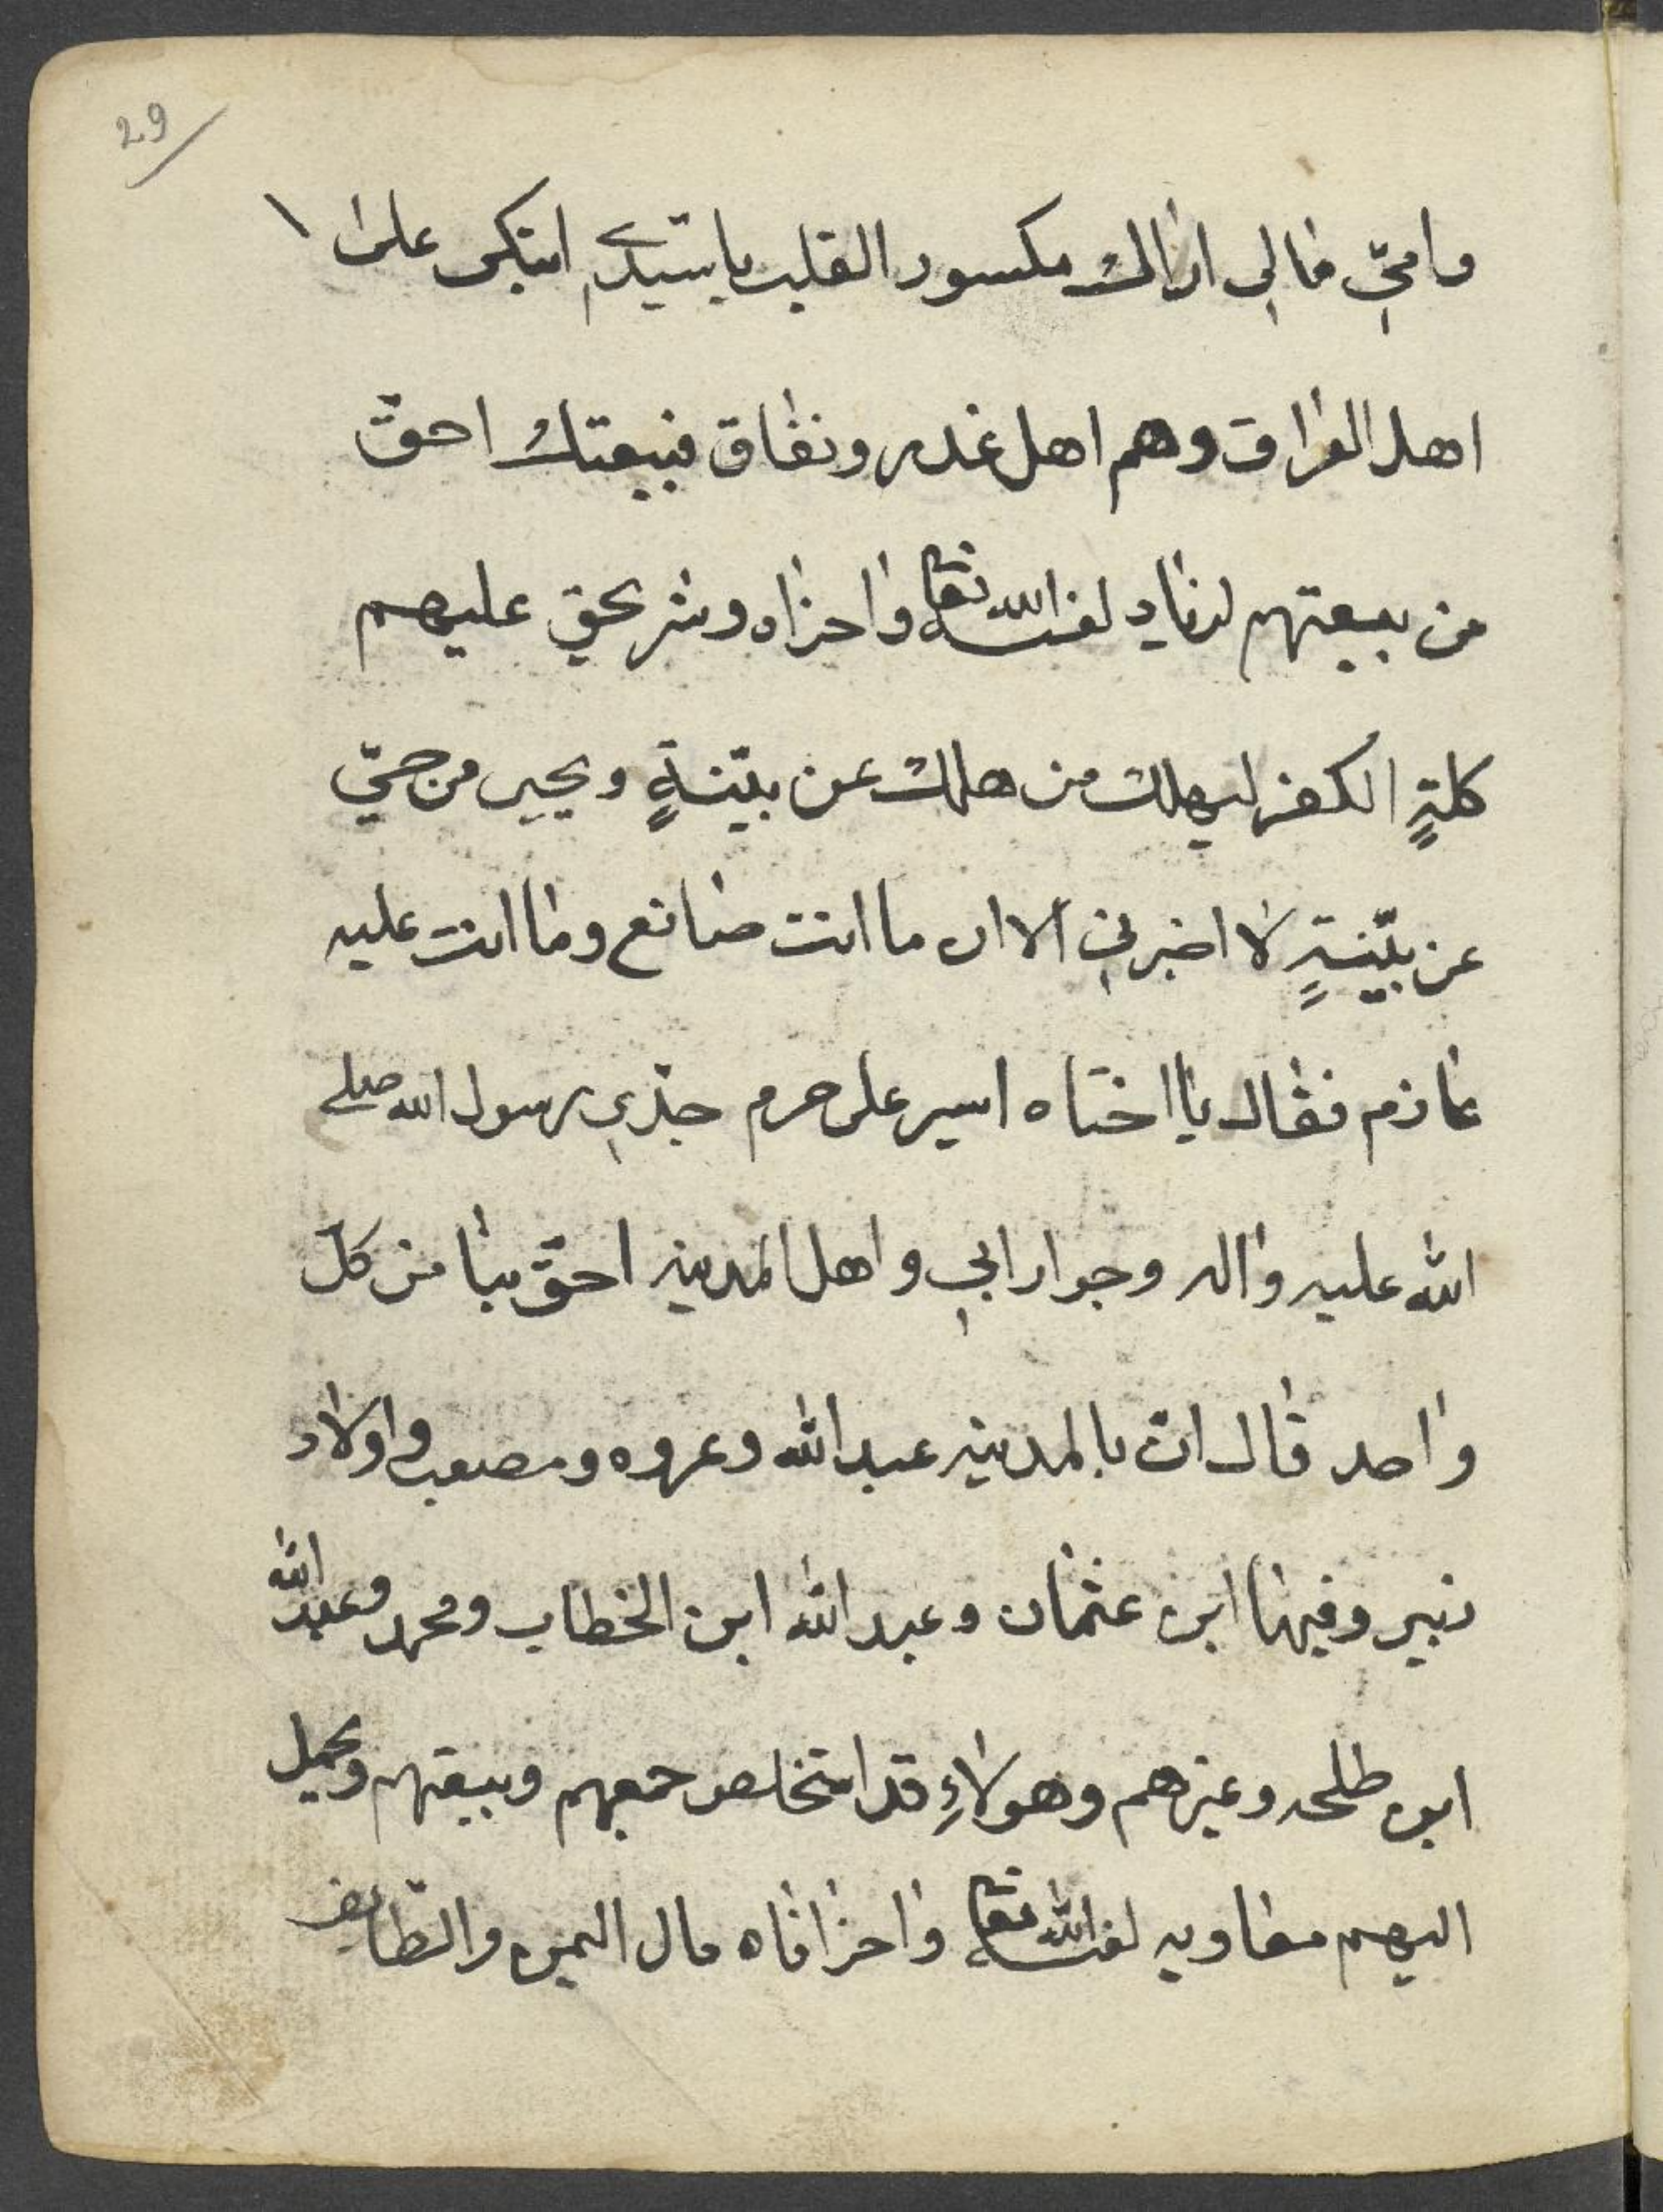 29
وامّي مٰالي ارٰاك مكسور القلب يا سيّدي اتبكى علىٰ
اهل العرٰاق وهم اهل غدر ونفٰاق فبيعتك احقّ
من بيعتهم لزيٰاد لعنه الله تعا وٰاخزٰاه وشر يحق عليهم
كلمةٍ الكفر ليهلك من هلك عن بيّنةٍ ويحيى من حيّ
عن بيّنةٍ لٰا اخبرني الاان ما انت صٰانع ومٰا انت عليه
عٰازم فقٰال يٰا اختٰاه اسير على حرم جدّي رسول الله صلى
الله عليه وٰاله وجوار ابي واهل المدينه احقّ بنٰا من كلّ
وٰاحد قٰال انّ بالمدينه عبد الله وعروه ومصعب واولٰاد
زبير وفيهٰا ابن عثمٰان وعبد الله ابن الخطاب ومحمد وعبد الله
ابن طلحه وغيرهم وهولٰاءِ قد استخلص جمعهم وبيعتهم ويحمل
اليهم معٰاويه لعنه الله تعا وٰاخزٰاه مال اليمن والطّايف